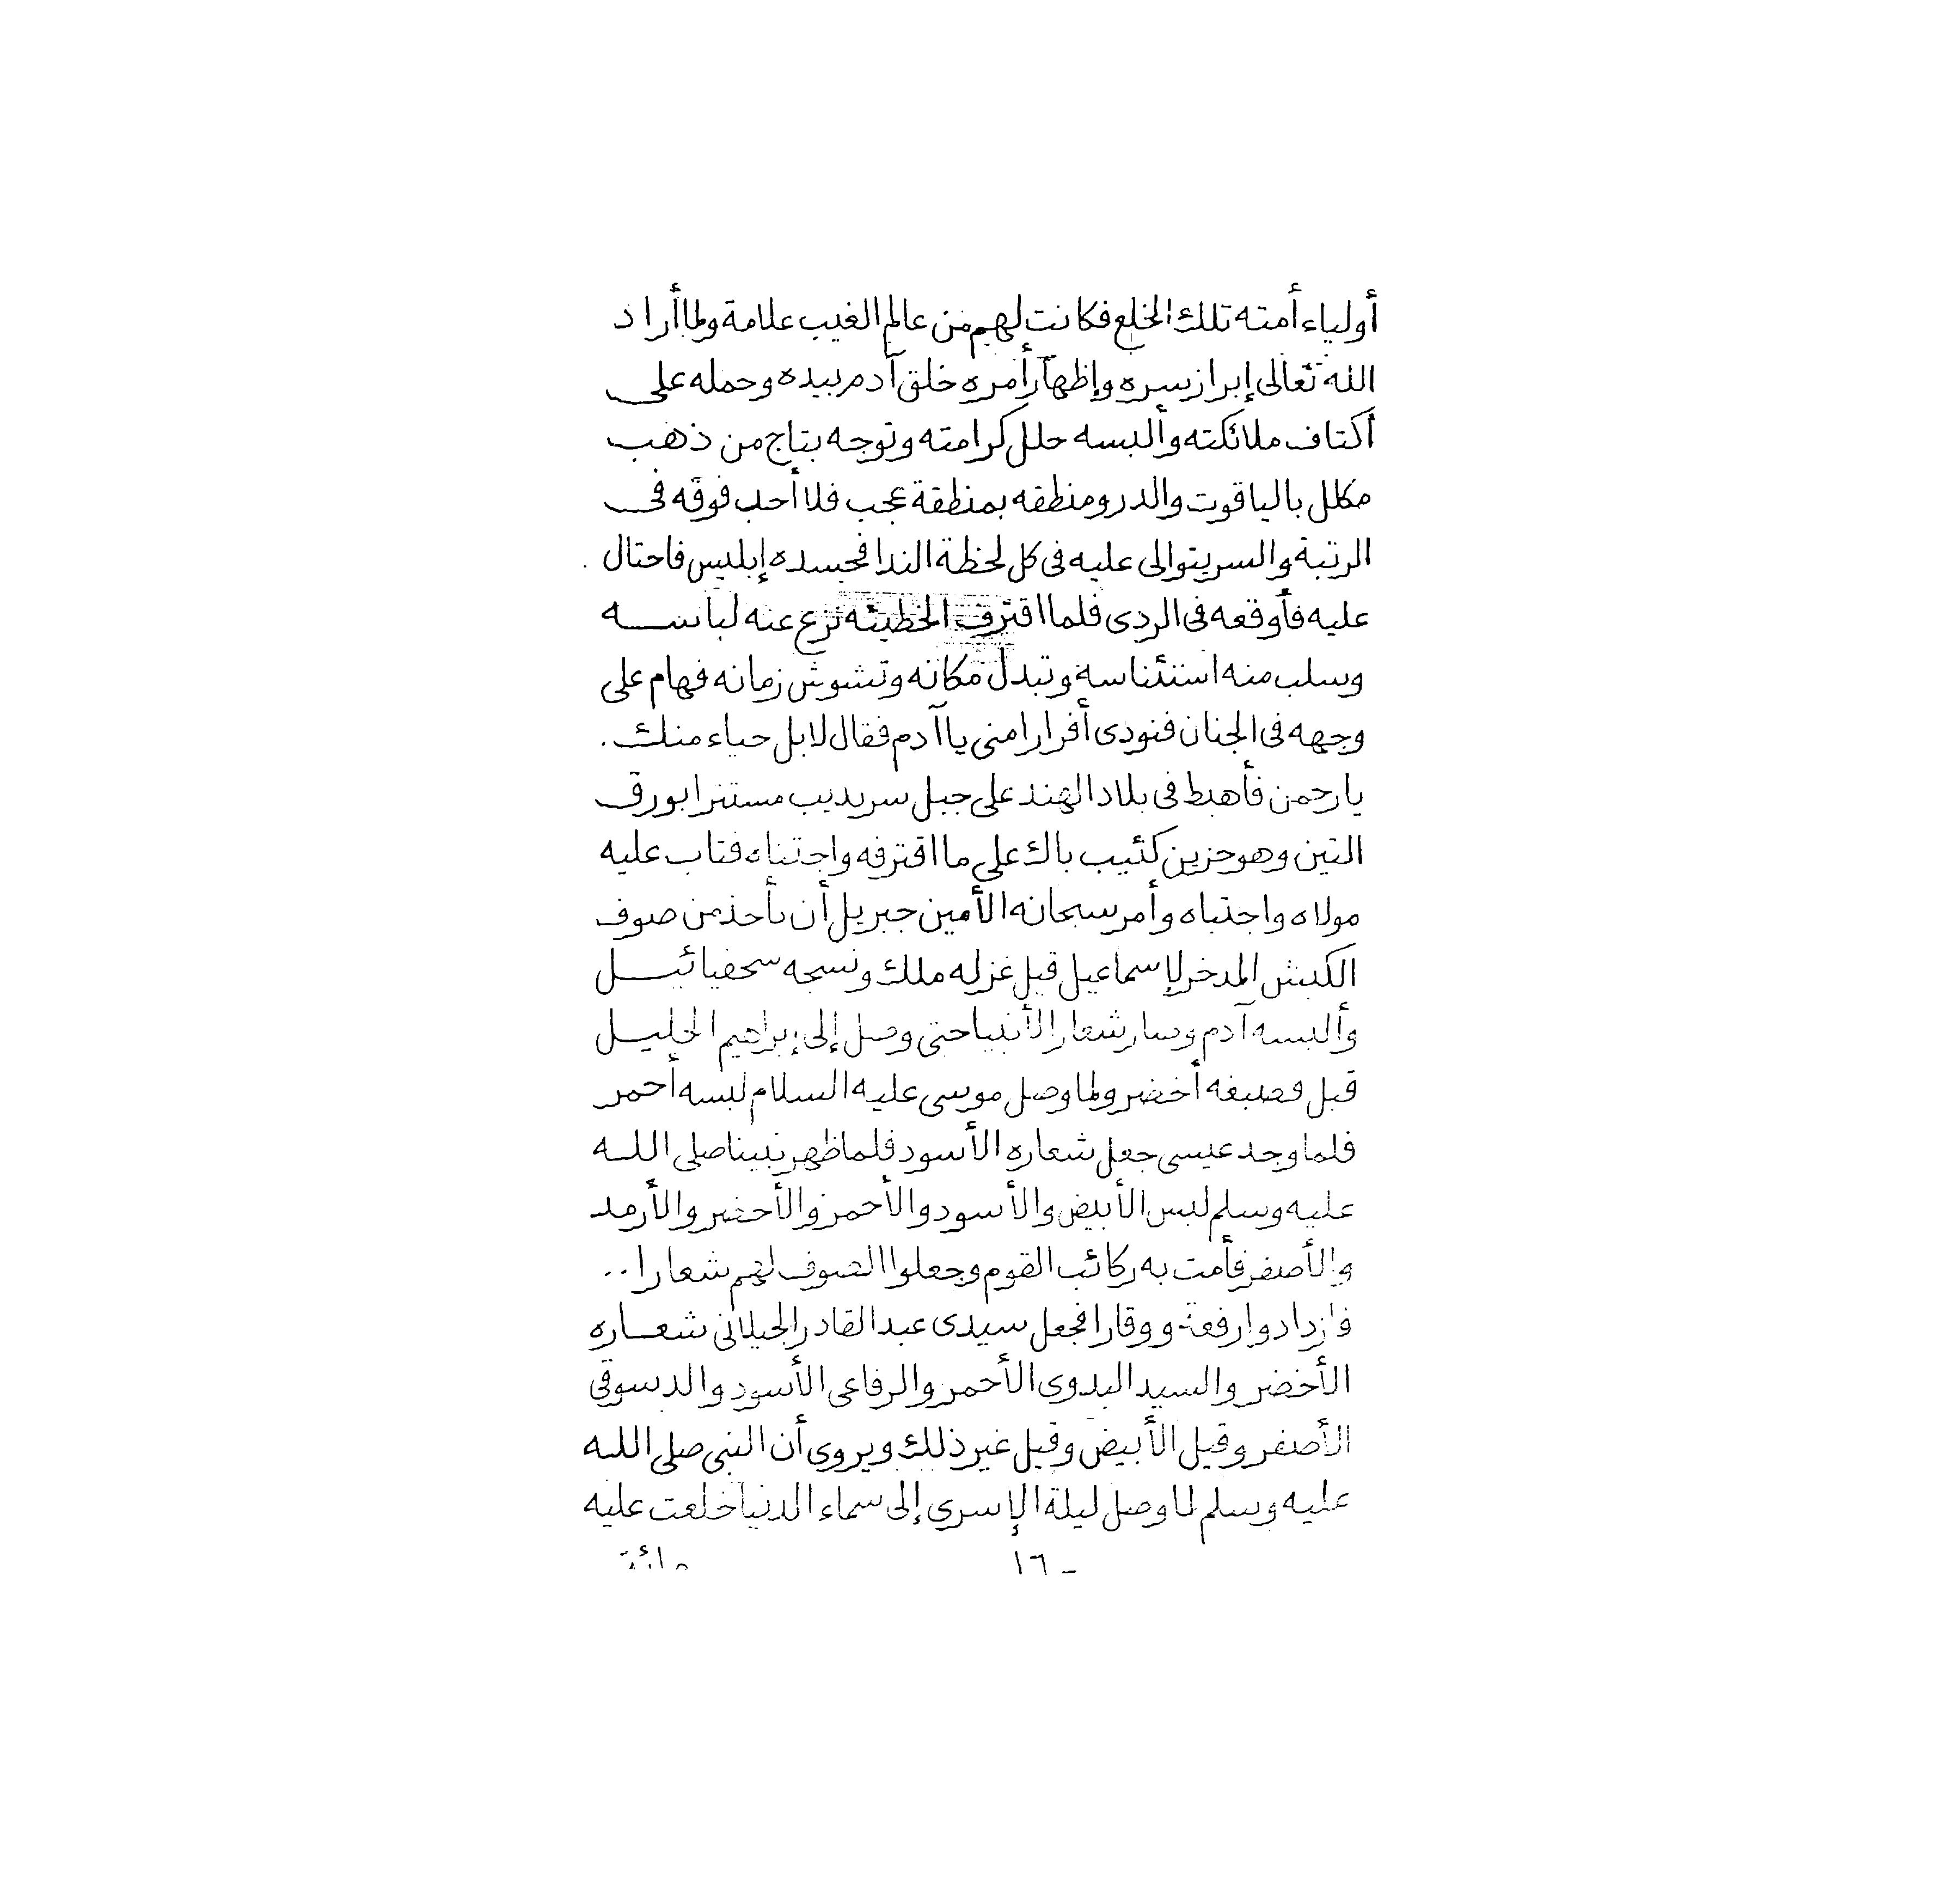 أولياء أمته تلك الخلع فكانت لهم من عالم الغيب علامة ولما أراد
الله تعالى إبراز سره وإظهار أمره خلق آدم بيده وحمله على
أكتاف ملائكته وألبسه حلل كرامته وتوجه بتاج من ذهب
مكلل بالياقوت والدر ومنطقه بمنطقة عجب فلا أحد فوقه فى
الرتبة والسر يتوالى عليه فى كل لحظة الندا فحسده إبليس فاحتال
عليه فأوقعه فى الردى فلما اقترف الخطيئه نزع عنه لباسه
وسلب منه استئناسه وتبدل مكانه وتشوش زمانه فهام على
وجهه فى الجنان فنودى أفرارا منى يا آدم فقال لا بل حياء منك .
يا رحمن فأهبط فى بلاد الهند على جبل سرنديب مستترا بورق
التين وهو حزين كئيب باك على ما اقترفه واجتناه فتاب عليه
مولاه واجتباه وأمر سبحانه الأمين جبريل أن يأخذ من صوف
الكبش المدخر لإسماعيل قيل غزله ملك ونسجه سحفيائيل
وألبسه آدم وصار شعار الأنبيا حتى وصل إلى إبراهيم الخليل
قبل فصبغه أخضر ولما وصل موسى عليه السلام لبسه أحمر
فلما وجد عيسى جعل شعاره الأسود فلما ظهر نبينا صلى الله
عليه وسلم لبس الأبيض والأسود والأحمر والأخضر والأرمد
والأصفر فأمت به ركائب القوم وجعلوا الصوف لهم شعارا ..
فازدادوا رفعة ووقارا فجعل سيدى عبد القادر الجيلانى شعاره
الأخضر والسيد البدوى الأحمر والرفاعى الأسود والدسوقى
الأصفر وقيل الأبيض وقيل غير ذلك ويروى أن النبى صلى الله
عليه وسلم لما وصل ليلة الإسرى إلى سماء الدنيا خلعت عليه
- ١٦